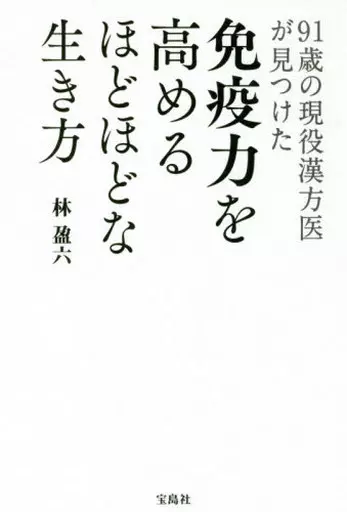 91歳の現役漢方医
が見つけた
免疫力を
高める
ほどほどな
生き方
林 盈六
宝島社